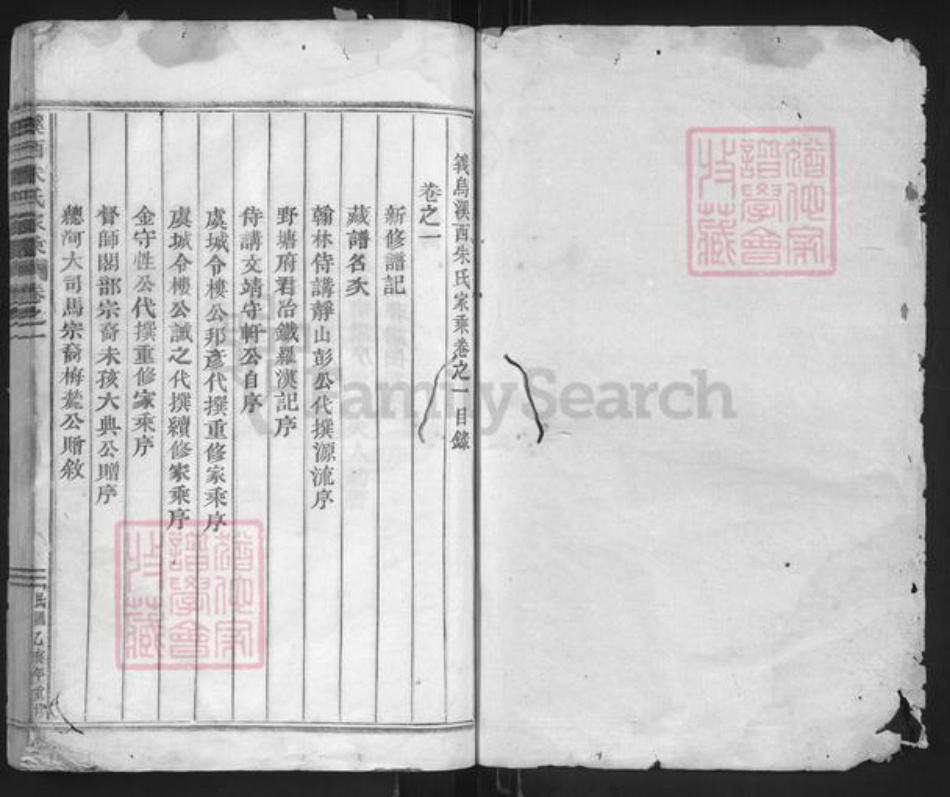 義烏溪西朱氏家乘卷之一目錄
卷之一
新修譜記
藏譜名次
翰林侍講靜山彭公代撰源流序
野塘府君冶鐵羅漢記序
侍講文靖守軒公自序
虞城令樓公邦彥代撰重修家乘序
虞城令樓公誠之代撰續修家乘序
金守性公代撰重修家乘序
督師閣部宗裔未孩大典公贈序
總河大司馬宗裔梅麓公贈敘
溪西朱氏家乘 卷之一
民國乙亥年重修
譜學會
收藏
譜學會
收藏
FamilySearch